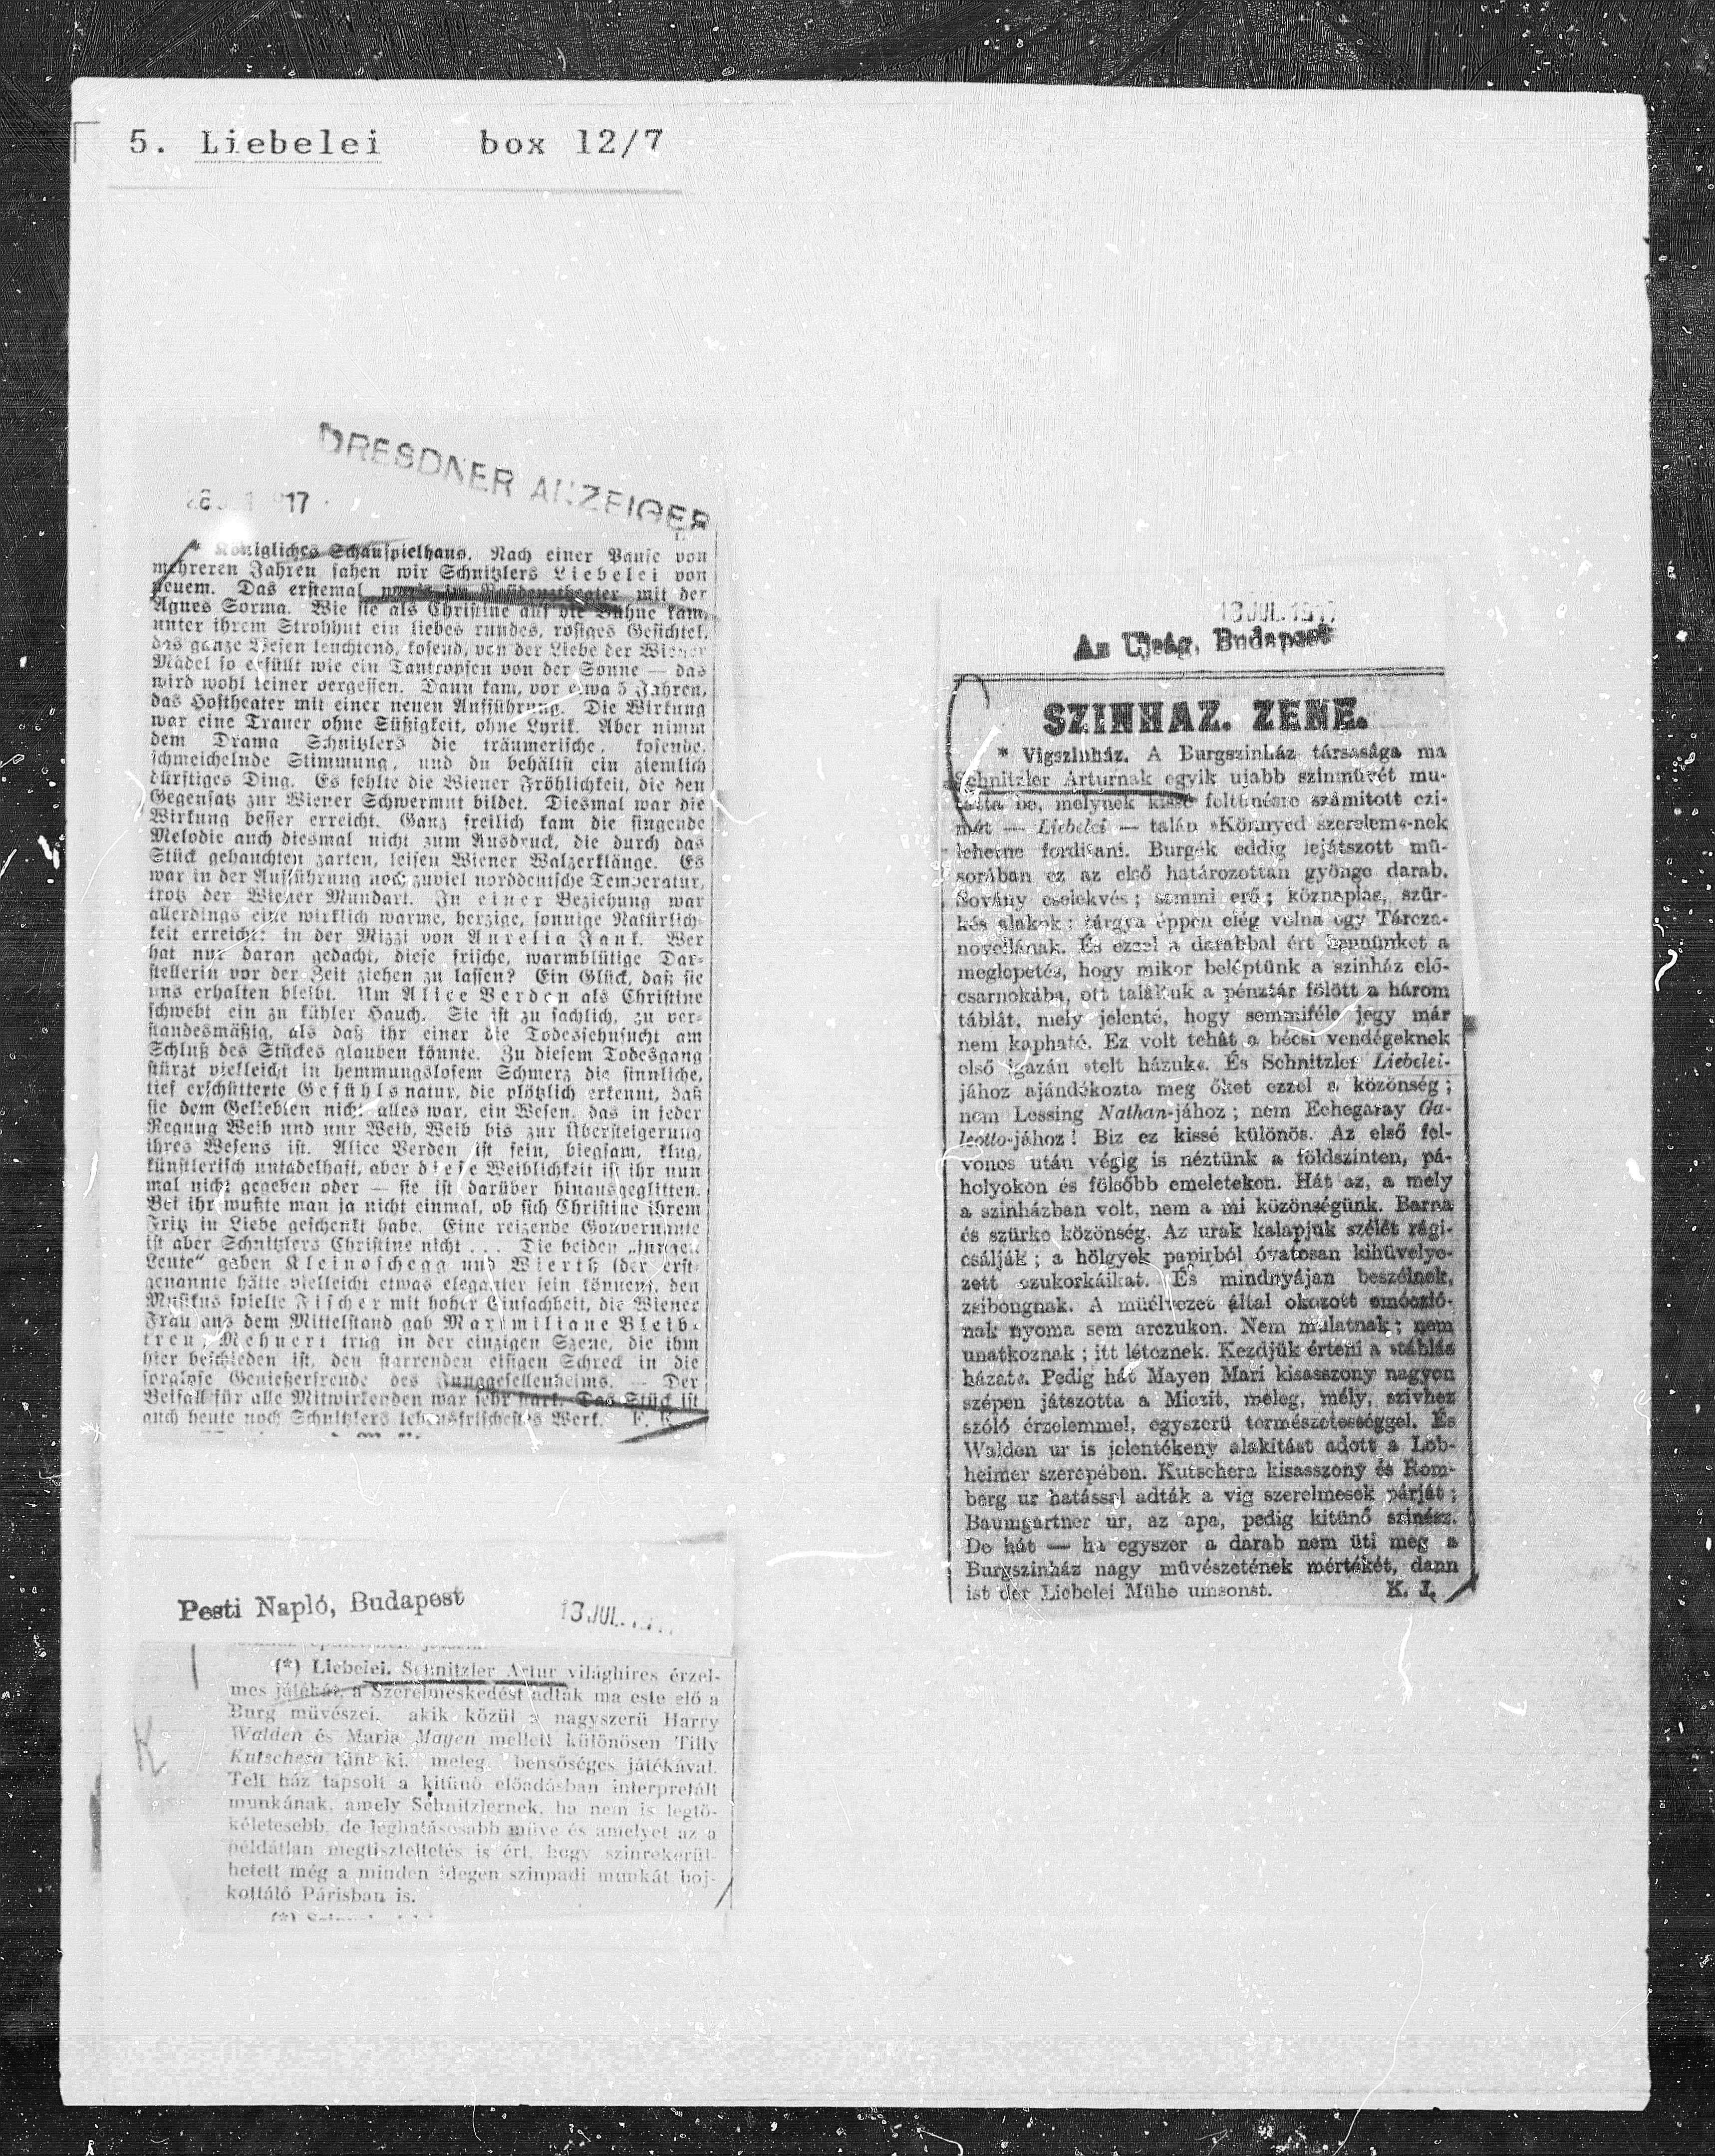 5. Liebelei box 12/7
DRESDNER ANZEIGER
17
* Königliches Schauspielhaus. Nach einer Pause von
mehreren Jahren sahen wir Schnitzlers Liebelei von
neuem. Das erstemal war's im Residenztheater mit der
Agnes Sorma. Wie sie als Christine auf die Bühne kam,
unter ihrem Strohhut ein liebes rundes, rosiges Gesichtel,
das ganze Wesen leuchtend, kosend, von der Liebe der Wiener
Mädel so erfüllt wie ein Tautropfen von der Sonne — das
wird wohl keiner vergessen. Dann kam, vor etwa 5 Jahren,
das Hoftheater mit einer neuen Aufführung. Die Wirkung
war eine Trauer ohne Süßigkeit, ohne Lyrik. Aber nimm
dem Drama Schnitzlers die träumerische, kosende,
schmeichelnde Stimmung, und du behältst ein ziemlich
dürftiges Ding. Es fehlte die Wiener Fröhlichkeit, die den
Gegensatz zur Wiener Schwermut bildet. Diesmal war die
Wirkung besser erreicht. Ganz freilich kam die singende
Melodie auch diesmal nicht zum Ausdruck, die durch das
Stück gehauchten zarten, leisen Wiener Walzerklänge. Es
war in der Aufführung noch zuviel norddeutsche Temperatur,
trotz der Wiener Mundart. In einer Beziehung war
allerdings eine wirklich warme, herzige, sonnige Natürlich-
keit erreicht: in der Mizzi von Aurelia Jank. Wer
hat nur daran gedacht, diese frische, warmblütige Dar-
stellerin vor der Zeit ziehen zu lassen? Ein Glück, daß sie
uns erhalten bleibt. Um Alice Verden als Christine
schwebt ein zu kühler Hauch. Sie ist zu sachlich, zu ver-
standesmäßig, als daß ihr einer die Todessehnsucht am
Schluß des Stückes glauben könnte. Zu diesem Todesgang
stürzt vielleicht in hemmungslosem Schmerz die sinnliche,
tief erschütterte Gefühlsnatur, die plötzlich erkennt, daß
sie dem Geliebten nicht alles war, ein Wesen, das in jeder
Regung Weib und nur Weib, Weib bis zur Übersteigerung
ihres Wesens ist. Alice Verden ist fein, biegsam, klug,
künstlerisch untadelhaft, aber diese Weiblichkeit ist ihr nun
mal nicht gegeben oder — sie ist darüber hinausgeglitten.
Bei ihr wußte man ja nicht einmal, ob sich Christine ihrem
Fritz in Liebe geschenkt habe. Eine reizende Gouvernante
ist aber Schnitzlers Christine nicht . . . Die beiden „jungen
Leute“ gaben Kleinoschegg und Wierth (der erst-
genannte hätte vielleicht etwas eleganter sein können), den
Musikus spielte Fischer mit hoher Einfachheit, die Wiener
Frau aus dem Mittelstand gab Maximiliane Bleib-
treu. Mehnert trug in der einzigen Szene, die ihm
hier beschieden ist, den starrenden eisigen Schreck in die
sorglose Genießerfreude des Junggesellenheims. — Der
Beifall für alle Mitwirkenden war sehr stark. Das Stück ist
auch heute noch Schnitzlers lebensfrischestes Werk. F. K.
Pesti Napló, Budapest 13 JUL.
(*) Liebelei. Schnitzler Artur világhires érzel-
mes játékát, a Szerelmeskedést adták ma este elő a
Burg müvészei, akik közül a nagyszerü Harry
Walden és Maria Mayen mellett különösen Tilly
Kutschera tünt ki, meleg, bensőséges játékával.
Telt ház tapsolt a kitünő előadásban interpretált
munkának, amely Schnitzlernek, ha nem is legtö-
kéletesebb, de leghatásosabb müve és amelyet az a
példátlan megtiszteltetés is ért, hogy szinrekerül-
hetett még a minden idegen szinpadi munkát boj-
kottáló Párisban is.
K
13 JUL. 1917
Az Ujság, Budapest
SZINHAZ. ZENE.
* Vigszinház. A Burgszinház társasága ma
Schnitzler Arturnak egyik ujabb szinmüvét mu-
tatta be, melynek kissé feltünésre számitott czi-
mét — Liebelei — talán »Könnyed szerelem«-nek
lehetne forditani. Burgék eddig lejátszott mü-
sorában ez az első határozottan gyönge darab.
Sovány cselekvés; semmi erő; köznapias, szür-
kés alakok; tárgya éppen elég volna egy Tárcza-
novellának. És ezzel a darabbal ért bennünket a
meglepetés, hogy mikor beléptünk a szinház elő-
csarnokába, ott találtuk a pénztár fölött a három
táblát, mely jelenté, hogy semmiféle jegy már
nem kapható. Ez volt tehát a bécsi vendégeknek
első igazán »telt házuk«. És Schnitzler Liebelei-
jához ajándékozta meg őket ezzel a közönség;
nem Lessing Nathan-jához; nem Echegaray Ga-
leotto-jához! Biz ez kissé különös. Az első fel-
vonás után végig is néztünk a földszinten, pá-
holyokon és fölsőbb emeleteken. Hát az, a mely
a szinházban volt, nem a mi közönségünk. Barna
és szürke közönség. Az urak kalapjuk szélét rági-
csálják; a hölgyek papirból óvatosan kihüvelye-
zett czukorkáikat. És mindnyájan beszélnek,
zsibongnak. A müélvezet által okozott emóczió-
nak nyoma sem arczukon. Nem mulatnak; nem
unatkoznak; itt léteznek. Kezdjük érteni a »táblás
házat«. Pedig hát Mayen Mari kisasszony nagyon
szépen játszotta a Miczit, meleg, mély, szivhez
szóló érzelemmel, egyszerü természetességgel. És
Walden ur is jelentékeny alakitást adott a Lob-
heimer szerepében. Kutschera kisasszony és Rom-
berg ur hatással adták a vig szerelmesek párját;
Baumgartner ur, az apa, pedig kitünő szinész.
De hát — ha egyszer a darab nem üti meg a
Burgszinház nagy müvészetének mértékét, dann
ist der Liebelei Mühe umsonst. K. J.